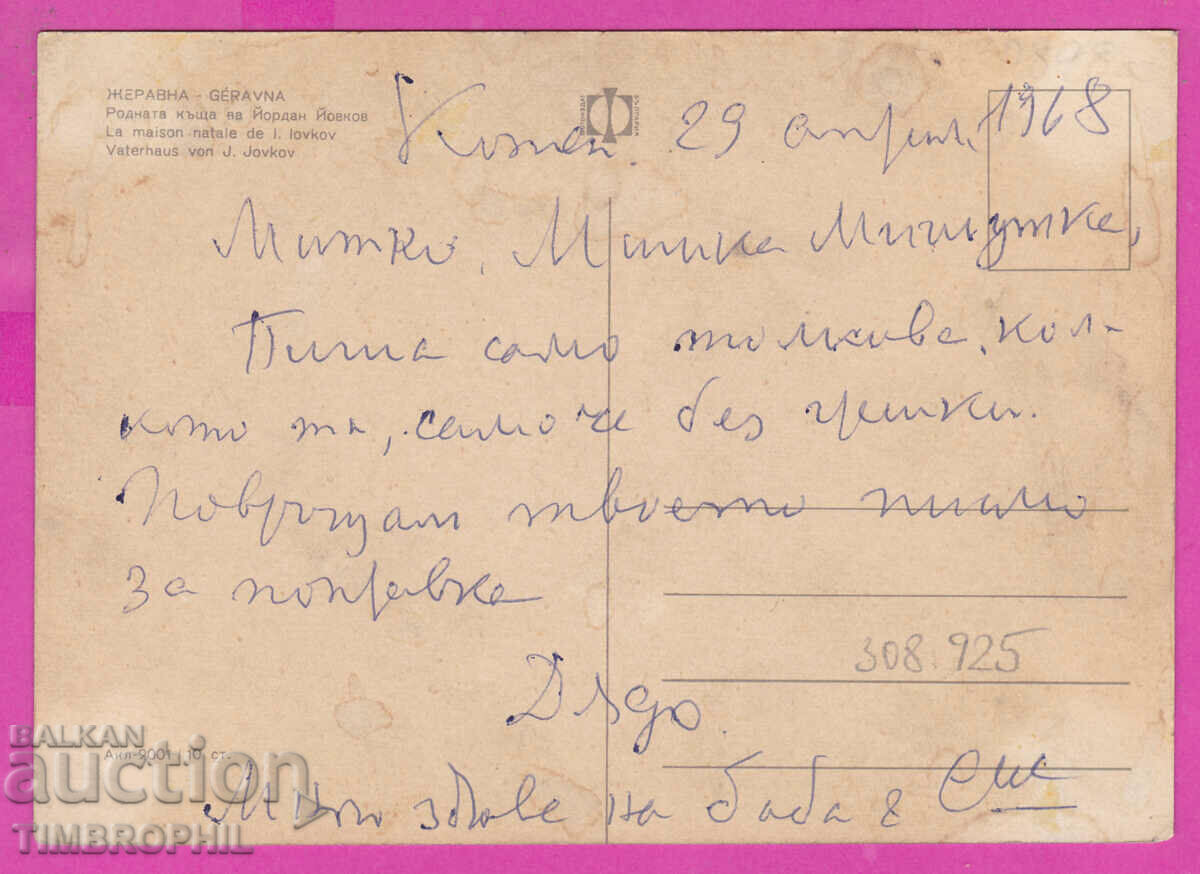 ЖЕРАВНА - GÉRAVNA
Родната къща на Йордан Йовков
La maison natale de I. Iovkov
Vaterhaus von J. Jovkov
Котел. 29 април 1968
Митко, Мишка Мишутка,
Пиша само толкова, кол-
кото ти, само че без грешки.
Повръщам твоето писмо
за поправка
308.925
Дядо.
Акл-2001 10 ст.
Много здраве на баба
BALKAN
auction
TIMBROPHIL